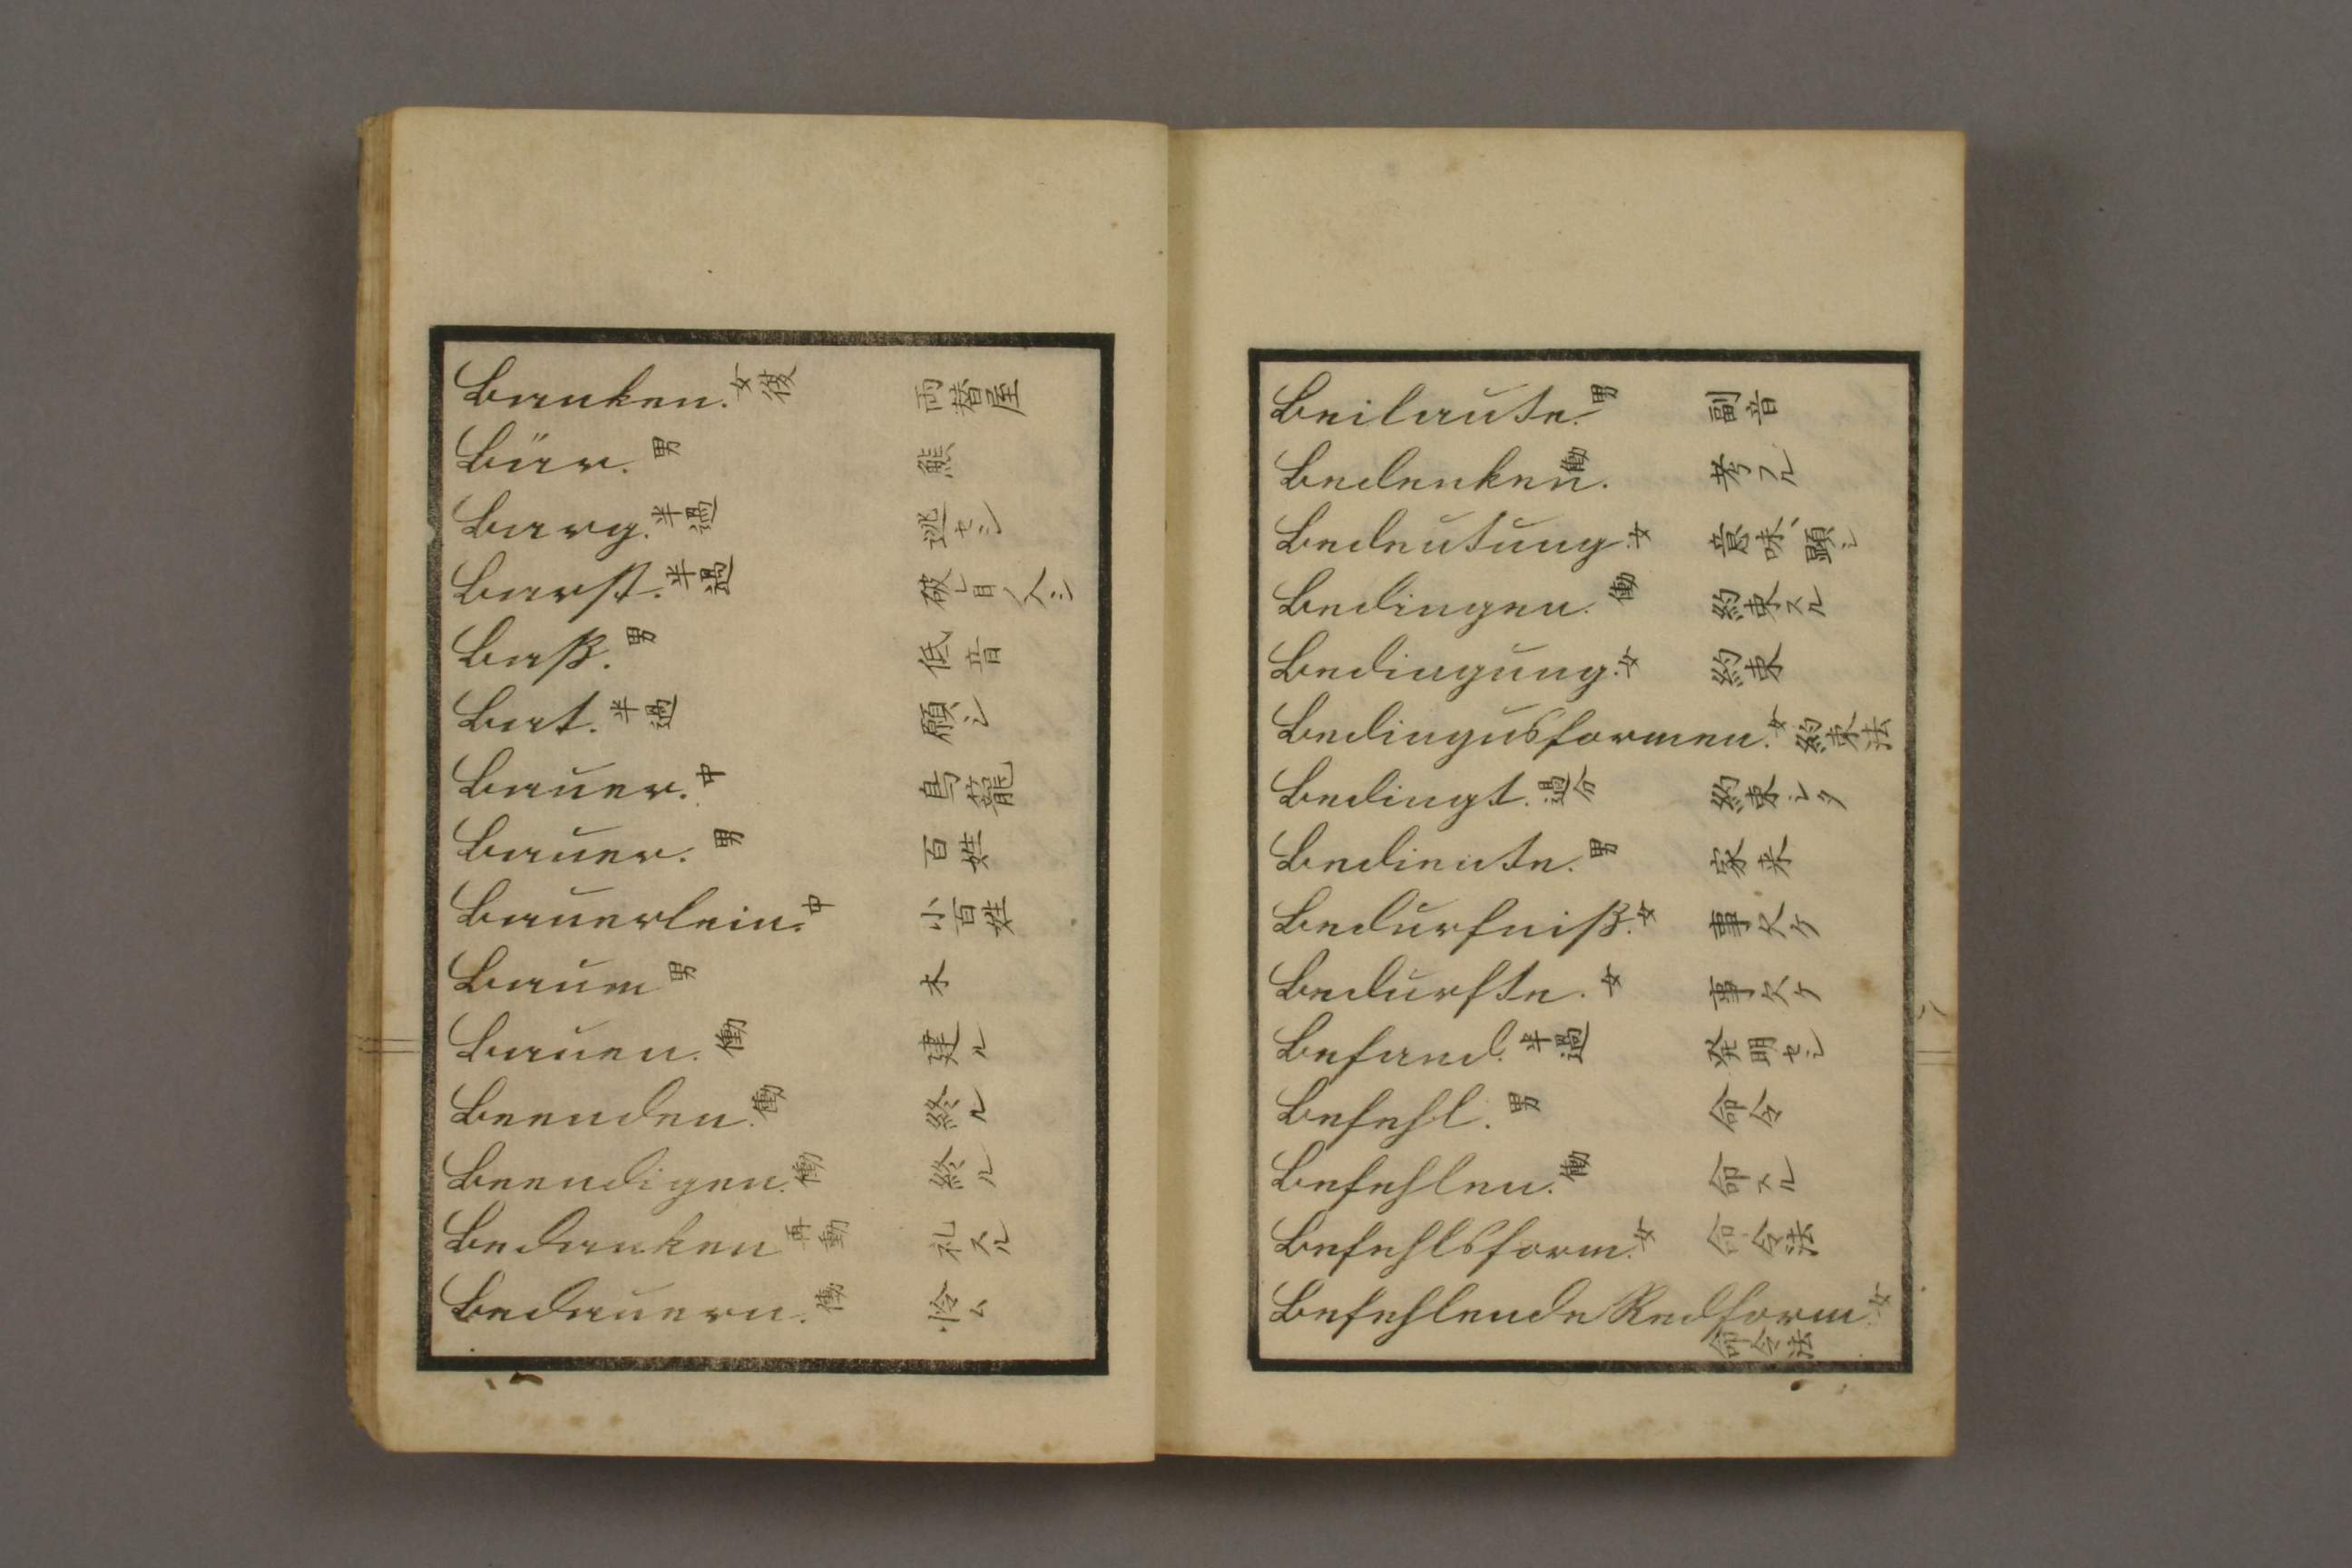 Banken. 女複 両替屋
Bär. 男 熊
Barg. 半過 逃セシ
Barst. 半過 破レ
Baß. 男 低音
Bat. 半過 願シ
Bauer. 中 鳥籠
Bauer. 男 百姓
Bauerlein. 中 小百姓
Baum 男 木
Bauen. 働 建ル
Beenden. 働 終ル
Beendigen. 働 終ル
Bedanken 再動 礼スル
Bedauern. 働 怜ム
Beilaute. 男 副音
Bedenken. 働 考フル
Bedeutung. 女 意味、顕シ
Bedingen. 働 約束スル
Bedingung. 女 約束
Bedingusformen. 女 約束法
Bedingt. 過分 約束シタ
Bediente. 男 家来
Bedurfniß. 女 事欠ケ
Bedurfte. 女 事欠ケ
Befand. 半過 発明セシ
Befehl. 男 命令
Befehlen. 働 命スル
Befehlsform. 女 命令法
Befehlende Redform 女
命令法